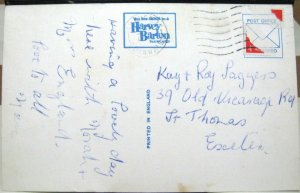 Having a lovely day
here with Norah +
Mr England.
Love to all
You too could be a
Harvey
Barton
PRINTED IN ENGLAND
POST OFFICE
Kay + Roy Saggers
39 Old Vicarage Rd
St Thomas
Exeter